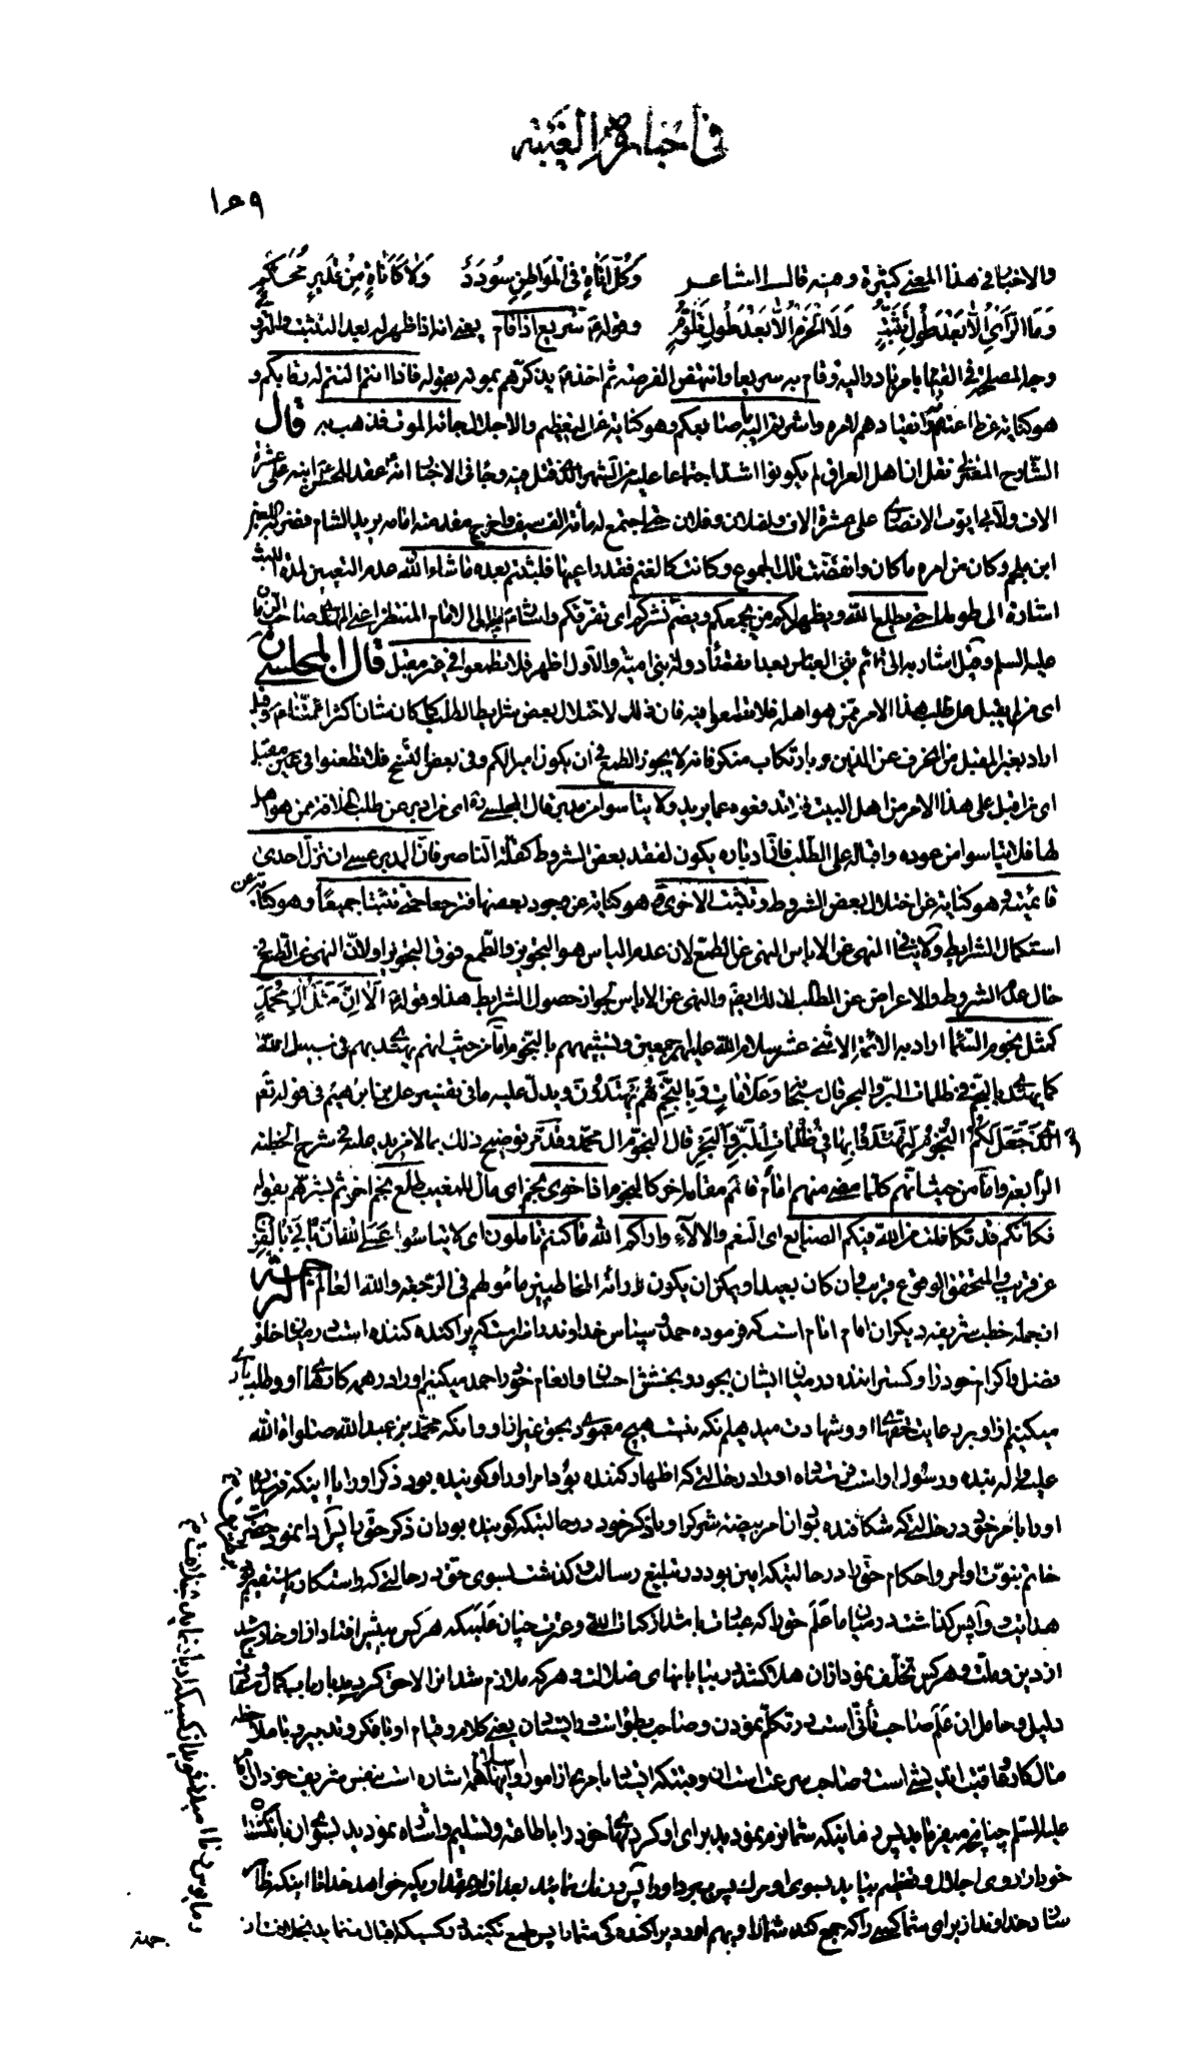 في اخباره الغيبيه
١٥٩
والاخبار في هذا المعنى كثيرة ومنه قال الشاعر وَكُلُّ اَناةٍ فِي المَواطِنِ سُودَدٌ وَلا كَاَناةٍ مِنْ تَدَبُّرٍ مُحْكَمٍ
وَمَا الرَّأيُ اِلّا بَعْدَ طُولِ تَثَبُّتٍ وَلَا الحَزْمُ اِلّا بَعْدَ طُولِ تَلَوُّمٍ وقوله سريع اذا قام يعني انه اذا ظهر له بعد التثبت والتروي
وجه المصلحة في القيام بامر بادر اليه وقام به سريعا وانتهض الفرصة ثم اخذ يذكرهم بموته بقوله فاذا انتم النتم له رقابكم و
هو كناية عن اطاعتهم وانقيادهم لامره واشرتم اليه باصابعكم وهو كناية عن التعظيم والاجلال جائه الموت فذهب به قال
الشارح المعتزلي نقل ان اهل العراق لم يكونوا اشد اجتماعا عليه من الشهر الذي قتل فيه وجاء في الاخبار انه عقد للحسن ابنه على عشرة
الاف ولابي ايوب الانصاري على عشرة الاف ولفلان وفلان حتى اجتمع له مأة الف سيف واخرج مقدمته امامه يريد الشام فضربه اللعين
ابن ملجم وكان من امره ما كان وانفضت تلك الجموع وكانت كالغنم فقد راعيها فلبثتم بعده ما شاء الله عدم التعيين لمدة اللبث
اشارة الى طولها حتى يطلع الله ويظهر لكم من يجمعكم ويضم نشركم اي تفرقكم واشار به الى الامام المنتظر اعني المهدي صاحب الزمان
عليه السلم وقيل اشار به الى قائم بني العباس بعد انقضاء دولة بني امية والاول اظهر فلا تطمعوا في غير مقبل قال المجلسي ره
اي من لم يقبل على طلب هذا الامر ممن هو اهله فلا تطمعوا فيه فان ذلك لاختلال بعض شرايط الطلب كما كان شان اكثر ائمتنا وقيل
اراد بغير المقبل من انحرف عن الدين بارتكاب منكر فانه لا يجوز الطمع في ان يكون اميرا لكم وفي بعض النسخ فلا تطعنوا في عين مقبل
اي من اقبل على هذا الامر من اهل البيت فلا تدفعوه عما يريد ولا تياسوا من مدبر قال المجلسي ره اي من ادبر عن طلب الخلافة ممن هو اهل
لها فلا تياسوا من عوده واقباله على الطلب فان ادباره يكون لفقد بعض الشروط كقلة الناصر فان المدبر عسى ان تزل احدى
قائمتيه وهو كناية عن اختلال بعض الشروط وتثبت الاخرى وهو كناية عن وجود بعضها فترجعا حتى تثبتا جميعا وهو كناية عن
استكمال الشرايط ولا ينافي النهي عن الاياس النهي عن الطمع لان عدم الياس هو التجويز والطمع فوق التجويز اولان النهي عن الطمع في
حال عدم الشروط والاعراض عن الطلب لذلك ايضا والنهي عن الاياس لجواز حصول الشرايط هذا وقوله اَلا اِنَّ مَثَلَ آلِ مُحَمَّدٍ
كمثل نجوم السماء اراد به الائمة الاثني عشر سلام الله عليهم اجمعين وتشبيههم بالنجوم اما من حيث انهم يهتدى بهم في سبيل الله
كما يهتدى بالنجم في ظلمات البر والبحر قال سبحانه وَعَلاماتٍ وَبِالنَّجْمِ هُمْ يَهْتَدُونَ ويدل عليه ما في تفسير علي بن ابراهيم في قوله تعالى
الَّذي جَعَلَ لَكُمُ النُّجُومَ لِتَهْتَدُوا بِها في ظُلُماتِ البَرِّ وَالبَحْرِ قال النجوم آل محمد وقد مر توضيح ذلك بما لا مزيد عليه في شرح الخطبة
الرابعة واما من حيث انهم كلما مضى منهم امام قام مقامه اخر كالنجوم اذا خوى نجم اي مال للمغيب طلع نجم اخر ثم بشرهم بقوله
فكانكم قد تكاملت من الله فيكم الصنايع اي النعم والالآء واراكم الله ما كنتم تاملون اي لا تياسوا عسى الله ان ياتي بالفرج
عن قريب والمتحقق الوقوع قريب وان كان بعيدا ويمكن ان يكون ارائة المخاطبين مامولهم في الرجعة والله العالم الترجمة
از جمله خطب شريفه ديگر آن امام انام است كه فرموده حمد و سپاس خداوندي را سزاست كه پراكنده كننده است در ميان خلق
فضل و اكرام خود را و گستراننده در ميان ايشان بجود و بخشش احسان و انعام خود را حمد ميكنيم او را در همه كارهاى او و طلب يارى
ميكنيم از او بر رعايت حقهاى او و شهادت ميدهيم آنكه نيست هيچ معبودى بحق غير از او و آنكه محمد بن عبد الله صلوات الله
عليه و آله بنده و رسول او است فرستاد او را در حالتى كه اظهار كننده بود امر او را و گوينده بود ذكر او را با اينكه فرستاد
او را بامر خود در حالتى كه شكافنده بود آن امر بيضه شرك را و بذكر خود در حالتيكه گوينده بود آن ذكر حق را پس ادا نمود حضرت
خاتم نبوت اوامر و احكام حق را در حالتيكه امين بود در تبليغ رسالت و گذشت بسوى حق در حالتى كه راستكار
هدايت و واپس گذاشت در ميان ما علم خود را كه عبارت باشد از كتاب الله و عترت چنان علميكه هر كس پيش افتاد از او خارج شد
از دين و ملت و هر كس تخلف نمود از آن هلاك شد در بيابانهاى ضلالت و هر كه ملازم شد آن را لاحق گرديد
دليل و حامل آن علم صاحب تأنى است در تكلم نمودن و صاحب بطؤ است در ايستادن يعنى كلام و قيام او با فكر و تدبير و با ملاحظه
مال كار و عاقبت انديشى است و صاحب سرعت است آن وقتيكه ايستاد باجراى از امور و اينها همه اشاره است بنفس شريف خود آن امام
عليه السلم چنانچه ميفرمايد پس زمانيكه شما نرم نموديد براى او گردنهاى خود را باطاعت و تسليم و اشاره نموديد بسوى آن بانگشتان
خود از روى اجلال و تعظيم بيايد بسوى او مرگ پس ببرد او را پس درنگ نمائيد بعد از او مقداريكه خواهد خدا تا اينكه ظاهر
سازد خداوند از براى شما كسى را كه جمع كند شما را و بهم آورد پراكندگى شما را پس طمع نكنيد در كسيكه اقبال ننمايد بخلافت از
جهة